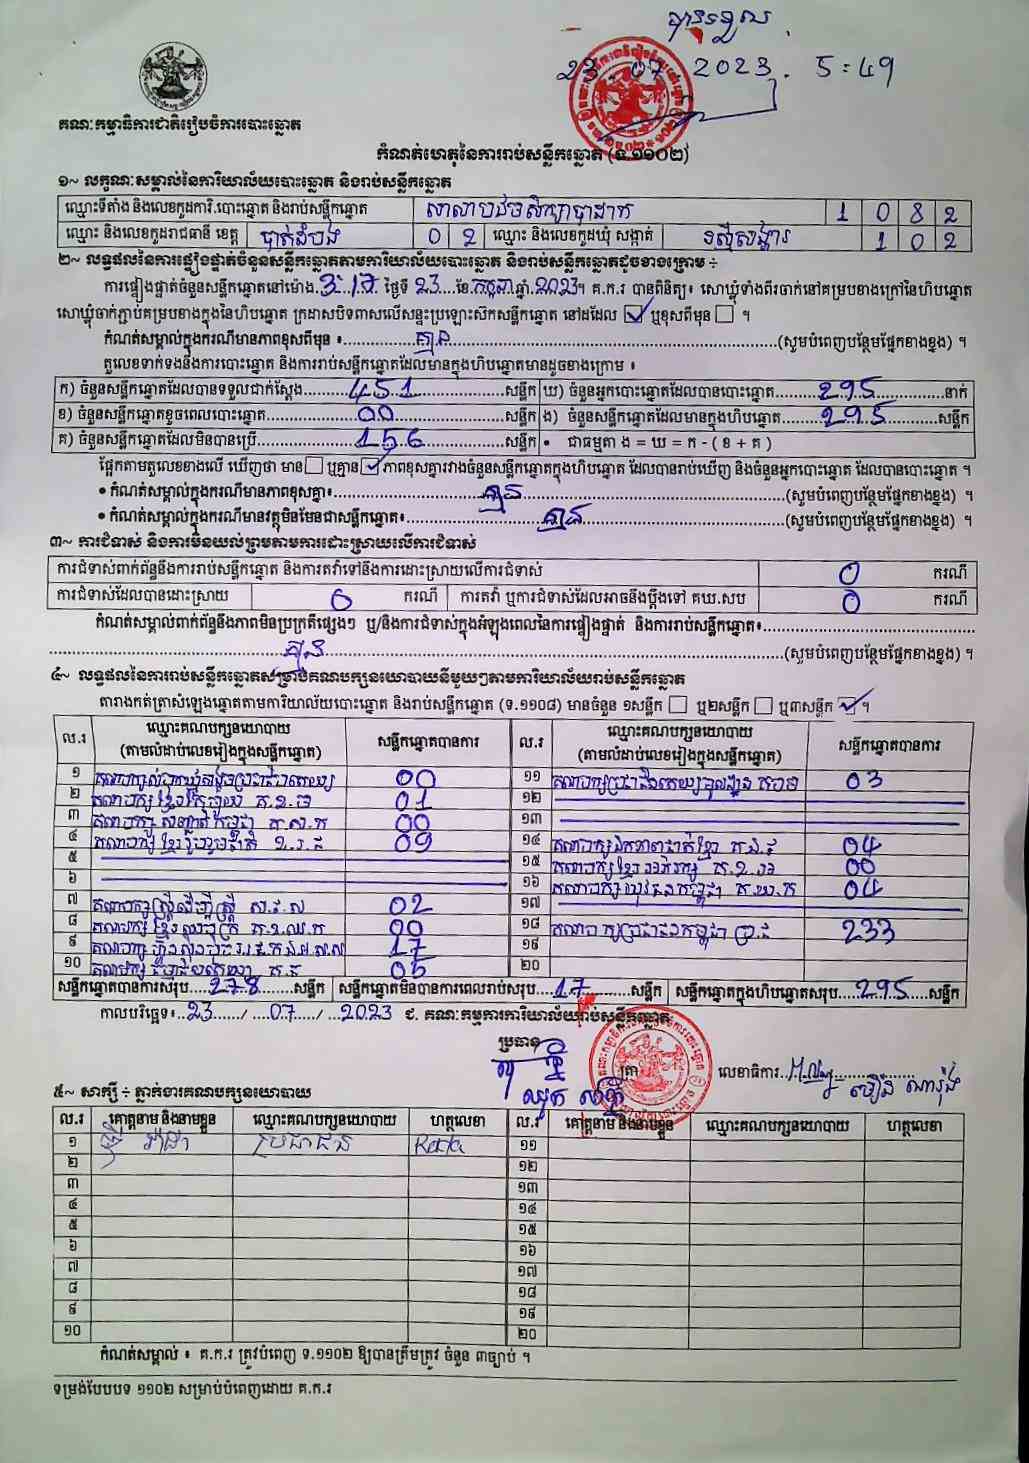 បានទទួល
23. 07 2023. 5:49
គណៈកម្មាធិការជាតិរៀបចំការបោះឆ្នោត
កំណត់ហេតុនៃការរាប់សន្លឹកឆ្នោត (ទ.១១០២)
១~ លក្ខណៈសម្គាល់នៃការិយាល័យបោះឆ្នោត និងរាប់សន្លឹកឆ្នោត
ឈ្មោះទីតាំង និងលេខកូដការិ.បោះឆ្នោត និងរាប់សន្លឹកឆ្នោត 1 0 8 2
ឈ្មោះ និងលេខកូដរាជធានី ខេត្ត បាត់ដំបង 0 2 ឈ្មោះ និងលេខកូដឃុំ សង្កាត់ 1 0 2
២~ លទ្ធផលនៃការផ្ទៀងផ្ទាត់ចំនួនសន្លឹកឆ្នោតតាមការិយាល័យបោះឆ្នោត និងរាប់សន្លឹកឆ្នោតដូចខាងក្រោម ÷
ការផ្ទៀងផ្ទាត់ចំនួនសន្លឹកឆ្នោតនៅម៉ោង 3:17 ថ្ងៃទី 23 ខែ កក្កដា ឆ្នាំ 2023។ គ.ក.រ បានពិនិត្យ៖ សោឃ្លុំទាំងពីរចាក់នៅគម្របខាងក្រៅនៃហិបឆ្នោត
សោឃ្លុំចាក់ភ្ជាប់គម្របខាងក្នុងនៃហិបឆ្នោត ក្រដាសបិទពាសលើសន្ទះប្រឡោះស៊កសន្លឹកឆ្នោត នៅដដែល ☑ ឬខុសពីមុន ☐ ។
កំណត់សម្គាល់ក្នុងករណីមានភាពខុសពីមុន ៖ គ្មាន (សូមបំពេញបន្ថែមផ្នែកខាងខ្នង) ។
តួលេខទាក់ទងនឹងការបោះឆ្នោត និងការរាប់សន្លឹកឆ្នោតដែលមានក្នុងហិបឆ្នោតមានដូចខាងក្រោម ៖
ក) ចំនួនសន្លឹកឆ្នោតដែលបានទទួលជាក់ស្តែង 451 សន្លឹក ឃ) ចំនួនអ្នកបោះឆ្នោតដែលបានបោះឆ្នោត 295 នាក់
ខ) ចំនួនសន្លឹកឆ្នោតខូចពេលបោះឆ្នោត 00 សន្លឹក ង) ចំនួនសន្លឹកឆ្នោតដែលមានក្នុងហិបឆ្នោត 295 សន្លឹក
គ) ចំនួនសន្លឹកឆ្នោតដែលមិនបានប្រើ 156 សន្លឹក • ជាធម្មតា ង = ឃ = ក - ( ខ + គ )
ផ្អែកតាមតួលេខខាងលើ ឃើញថា មាន ☐ ឬគ្មាន ☑ ភាពខុសគ្នារវាងចំនួនសន្លឹកឆ្នោតក្នុងហិបឆ្នោត ដែលបានរាប់ឃើញ និងចំនួនអ្នកបោះឆ្នោត ដែលបានបោះឆ្នោត ។
• កំណត់សម្គាល់ក្នុងករណីមានភាពខុសគ្នា៖ គ្មាន (សូមបំពេញបន្ថែមផ្នែកខាងខ្នង) ។
• កំណត់សម្គាល់ក្នុងករណីមានវត្ថុមិនមែនជាសន្លឹកឆ្នោត៖ គ្មាន (សូមបំពេញបន្ថែមផ្នែកខាងខ្នង) ។
៣~ ការជំទាស់ និងការមិនយល់ព្រមតាមការដោះស្រាយលើការជំទាស់
ការជំទាស់ពាក់ព័ន្ធនឹងការរាប់សន្លឹកឆ្នោត និងការតវ៉ាទៅនឹងការដោះស្រាយលើការជំទាស់ 0 ករណី
ការជំទាស់ដែលបានដោះស្រាយ 0 ករណី ការតវ៉ា ឬការជំទាស់ដែលអាចនឹងប្តឹងទៅ គឃ.សប 0 ករណី
កំណត់សម្គាល់ពាក់ព័ន្ធនឹងភាពមិនប្រក្រតីផ្សេងៗ ឬ/និងការជំទាស់ក្នុងអំឡុងពេលនៃការផ្ទៀងផ្ទាត់ និងការរាប់សន្លឹកឆ្នោត៖
គ្មាន (សូមបំពេញបន្ថែមផ្នែកខាងខ្នង) ។
៤~ លទ្ធផលនៃការរាប់សន្លឹកឆ្នោតសម្រាប់គណបក្សនយោបាយនីមួយៗតាមការិយាល័យរាប់សន្លឹកឆ្នោត
តារាងកត់ត្រាសំឡេងឆ្នោតតាមការិយាល័យបោះឆ្នោត និងរាប់សន្លឹកឆ្នោត (ទ.១១០៨) មានចំនួន ១សន្លឹក ☐ ឬ២សន្លឹក ☐ ឬ៣សន្លឹក ☑ ។
ល.រ ឈ្មោះគណបក្សនយោបាយ (តាមលំដាប់លេខរៀងក្នុងសន្លឹកឆ្នោត) សន្លឹកឆ្នោតបានការ ល.រ ឈ្មោះគណបក្សនយោបាយ (តាមលំដាប់លេខរៀងក្នុងសន្លឹកឆ្នោត) សន្លឹកឆ្នោតបានការ
១ 00 ១១ 03
២ 01 ១២
៣ 00 ១៣
៤ គណបក្សខ្មែររួបរួមជាតិ ខ.រ.ជ 09 ១៤ គណបក្សឯកភាពជាតិខ្មែរ 04
៥ ១៥ 00
៦ ១៦ គណបក្សយុវជនកម្ពុជា គ.យ.ក 04
៧ គណបក្សស្ត្រីដើម្បីស្ត្រី ស.ដ.ស 02 ១៧
៨ 00 ១៨ គណបក្សប្រជាជនកម្ពុជា 233
៩ 17 ១៩
១០ 05 ២០
សន្លឹកឆ្នោតបានការសរុប 278 សន្លឹក សន្លឹកឆ្នោតមិនបានការពេលរាប់សរុប 17 សន្លឹក សន្លឹកឆ្នោតក្នុងហិបឆ្នោតសរុប 295 សន្លឹក
កាលបរិច្ឆេទ៖ 23 / 07 / 2023 ជ. គណៈកម្មការការិយាល័យរាប់សន្លឹកឆ្នោត
ប្រធាន
ត្រា លេខាធិការ
៥~ សាក្សី ÷ ភ្នាក់ងារគណបក្សនយោបាយ
ល.រ គោត្តនាម និងនាមខ្លួន ឈ្មោះគណបក្សនយោបាយ ហត្ថលេខា ល.រ គោត្តនាម និងនាមខ្លួន ឈ្មោះគណបក្សនយោបាយ ហត្ថលេខា
១ ប្រជាជន ១១
២ ១២
៣ ១៣
៤ ១៤
៥ ១៥
៦ ១៦
៧ ១៧
៨ ១៨
៩ ១៩
១០ ២០
កំណត់សម្គាល់ ៖ គ.ក.រ ត្រូវបំពេញ ទ.១១០២ ឱ្យបានត្រឹមត្រូវ ចំនួន ៣ច្បាប់ ។
ទម្រង់បែបបទ ១១០២ សម្រាប់បំពេញដោយ គ.ក.រ